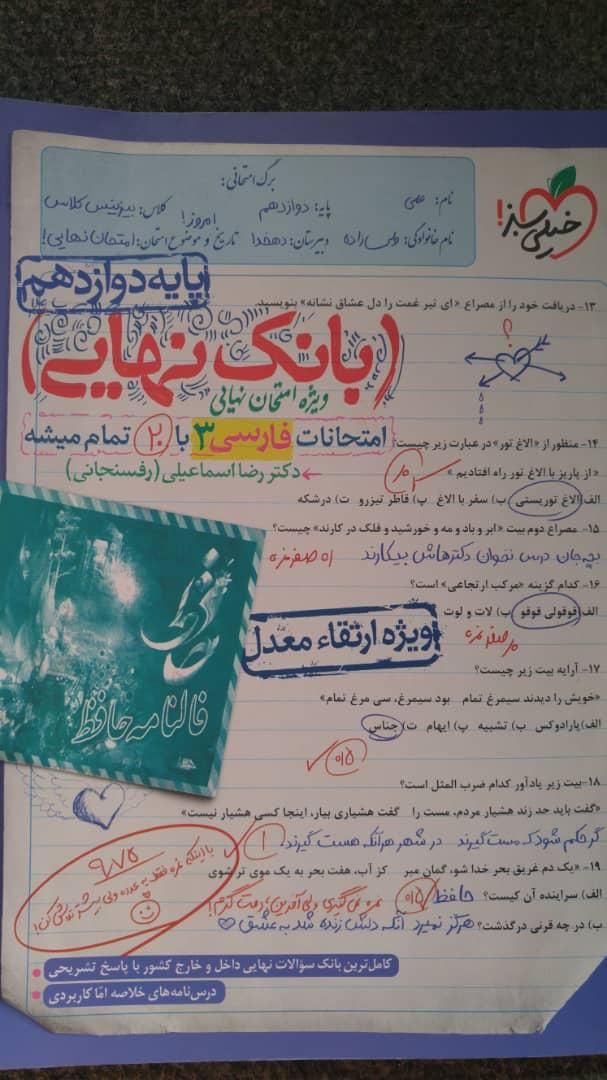 خیلی سبز!
برگ امتحانی:
نام: پایه: دوازدهم کلاس: بیزینس کلاس
نام خانوادگی: دبیرستان: دهخدا تاریخ و موضوع امتحان: امروز! امتحان نهایی!
پایه دوازدهم
۱۳- دریافت خود را از مصراع «ای تیر غمت را دل عشاق نشانه» بنویسید.
؟
(بانک نهایی)
ویژه امتحان نهایی
امتحانات فارسی ۳ با ۲۰ تمام میشه
دکتر رضا اسماعیلی (رفسنجانی)
۱۴- منظور از «الاغ تور» در عبارت زیر چیست؟
« از پاریز با الاغ تور راه افتادیم »
الف) الاغ توریستی ب) سفر با الاغ پ) قاطر تیزرو ت) درشکه
۱۵- مصراع دوم بیت «ابر و باد و مه و خورشید و فلک در کارند» چیست؟
بچه جان درس نخوان دکترهاش بیکارند
صفر نمره
۱۶- کدام گزینه «مرکب ارتجاعی» است؟
الف) قوقولی قوقو ب) لات و لوت
صفر نمره
ویژه ارتقاء معدل
۱۷- آرایه بیت زیر چیست؟
«خویش را دیدند سیمرغ تمام بود سیمرغ، سی مرغ تمام»
الف) پارادوکس ب) تشبیه پ) ایهام ت) جناس
۰/۵
فالنامه حافظ
۱۸- بیت زیر یادآور کدام ضرب المثل است؟
«گفت باید حد زند هشیار مردم، مست را گفت هشیاری بیار، اینجا کسی هشیار نیست»
گر حکم شود که مست گیرند در شهر هر آنکه هست گیرند
۱
۱۹- «یک دم غریق بحر خدا شو، گمان مبر کز آب، هفت بحر به یک موی تر شوی
الف) سراینده آن کیست؟ حافظ ۰/۵
نمره نمی‌گیری ولی آفرین، دمت گرم!
ب) در چه قرنی درگذشت؟ هرگز نمیرد آنکه دلش زنده شد به عشق
۹/۷۵
با اینکه نمره فقط یه عدده ولی بیشتر تلاش کن!
کامل‌ترین بانک سؤالات نهایی داخل و خارج کشور با پاسخ تشریحی
درس‌نامه‌های خلاصه اما کاربردی